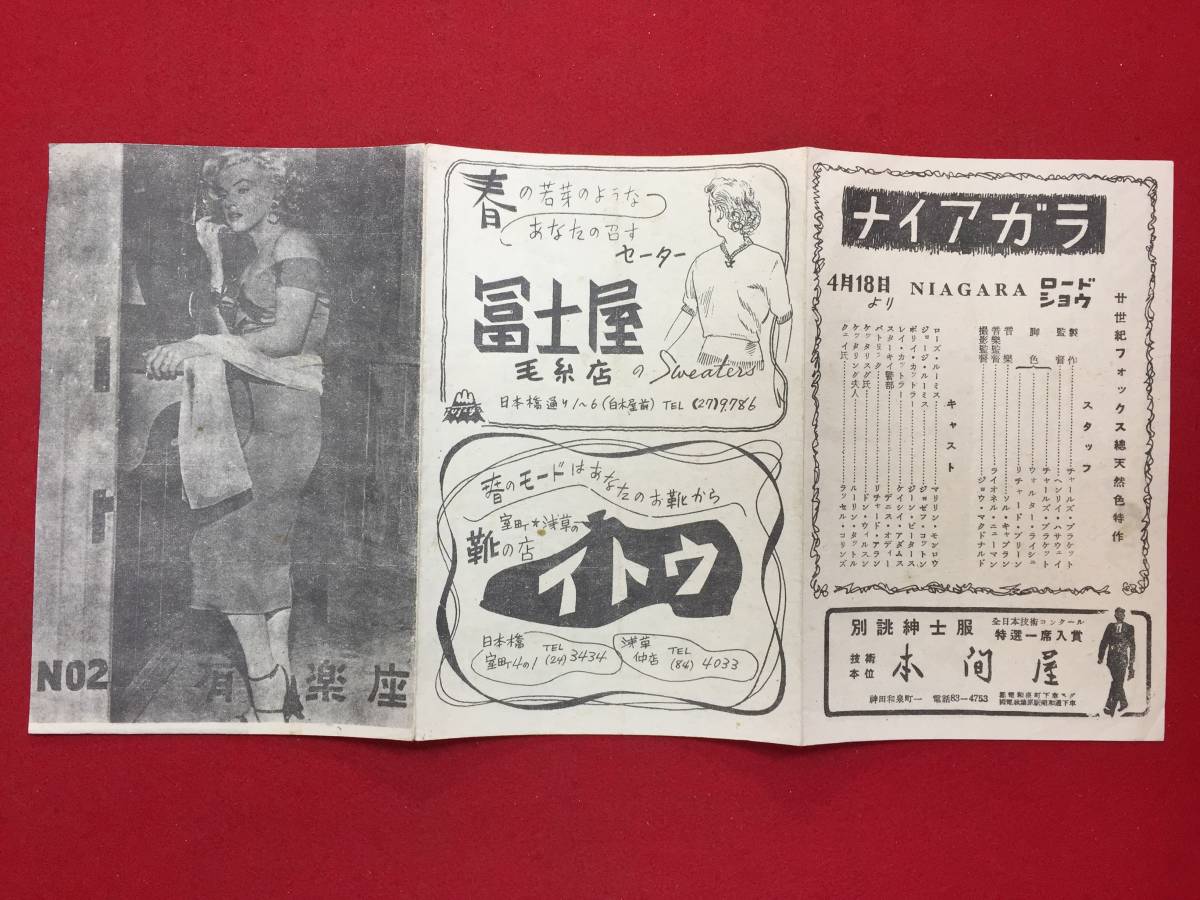 NO2 有楽座
春の若芽のような
あなたの召す
セーター
冨士屋
毛糸店の Sweaters
日本橋通り1~6(白木屋前) TEL (27)9786
春のモードはあなたのお靴から
室町*浅草の
靴の店
イトウ
日本橋
室町4の1 TEL (24)3434
浅草
仲店 TEL (84) 4033
ナイアガラ
4月18日
より
NIAGARA
ロード
ショウ
廿世紀フォックス總天然色特作
スタッフ
製作……チャールズ・ブラケット
監督……ヘンリイ・ハサウェイ
脚色……チャールズ・ブラケット
ウォルター・ライシュ
リチャード・ブリーン
音樂……ソル・キャプラン
音樂監督……ライオネル・ニューマン
撮影監督……ジョウ・マクドナルド
キャスト
ローズ・ルーミス……マリリン・モンロウ
ジョージ・ルーミス……ジョゼフ・コットン
ポリイ・カットラー……ジーン・ピータース
レイ・カットラー……ケイシイ・アダムス
スターキイ警部……デニス・オディー
パトリック……リチャード・アラン
ケッタリング氏……ドン・ウィルスン
ケッタリング夫人……ルーリン・タットル
クェイ氏……ラッセル・コリンズ
別誂紳士服
全日本技術コンクール
特選一席入賞
技術
本位
本間屋
神田和泉町一 電話83-4753
都電和泉町下車スグ
國電秋葉原駅昭和通下車